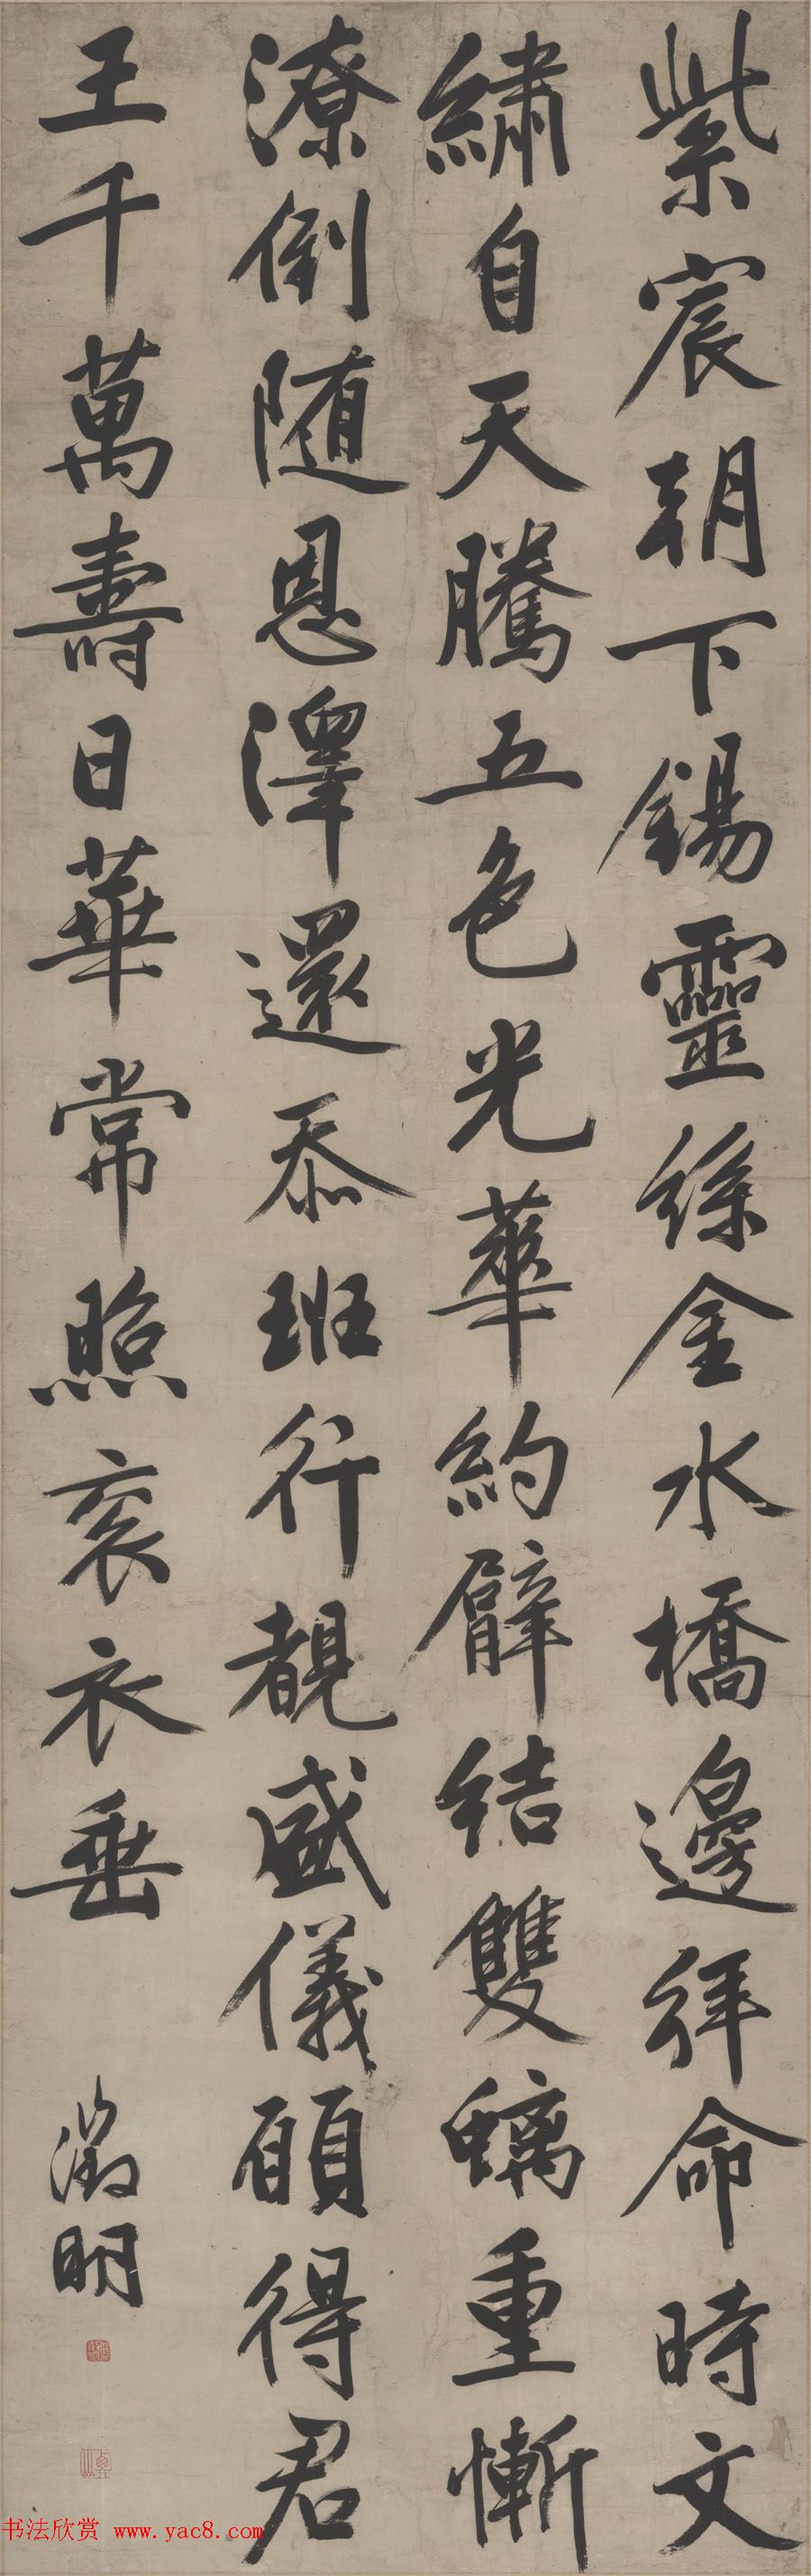 紫宸朝下錫靈絲金水橋邊拜命時文
繡自天騰五色光華約臂結雙螭重慚
潦倒随恩澤還忝班行覩盛儀願得君
王千萬壽日華常照衮衣垂
徵明
书法欣赏 www.yac8.com